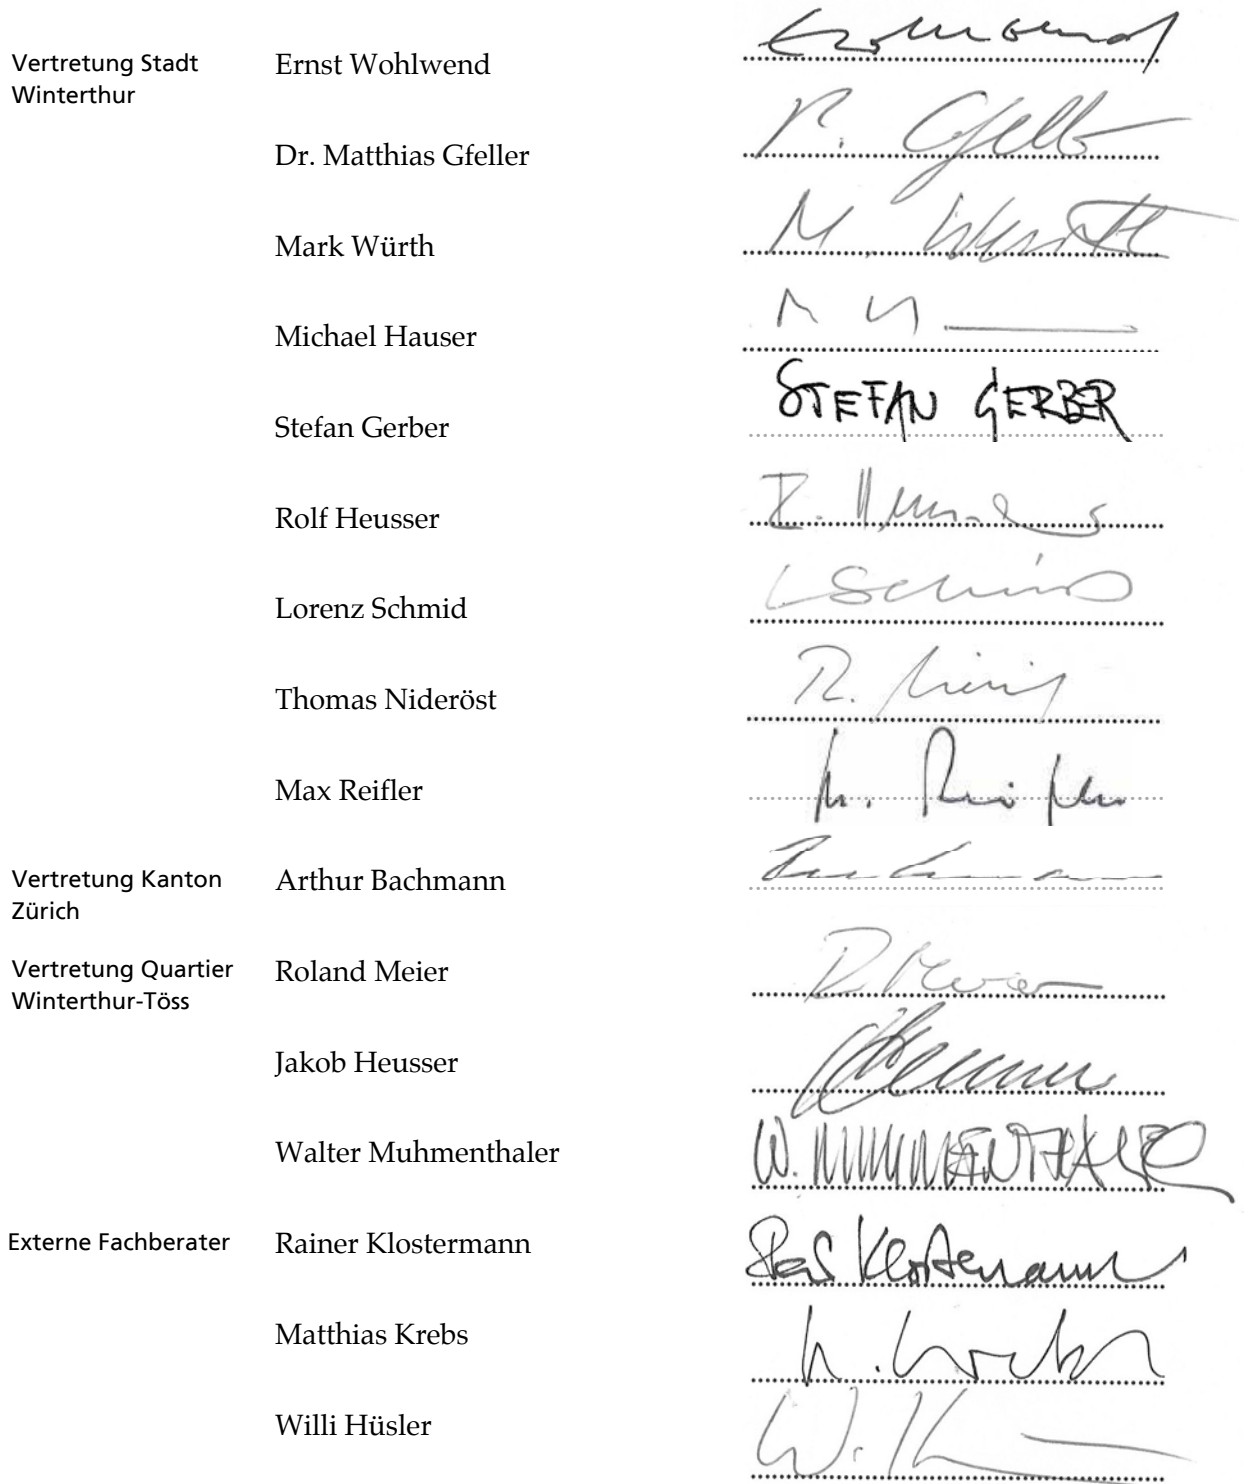 Vertretung Stadt Winterthur
Ernst Wohlwend
Dr. Matthias Gfeller
P. Gfeller
Mark Würth
M. Würth
Michael Hauser
Stefan Gerber
STEFAN GERBER
Rolf Heusser
Lorenz Schmid
L Schmid
Thomas Nideröst
Max Reifler
M. Reifler
Vertretung Kanton Zürich
Arthur Bachmann
Bachmann
Vertretung Quartier Winterthur-Töss
Roland Meier
R. Meier
Jakob Heusser
Walter Muhmenthaler
W. MUHMENTHALER
Externe Fachberater
Rainer Klostermann
Klostermann
Matthias Krebs
M. Krebs
Willi Hüsler